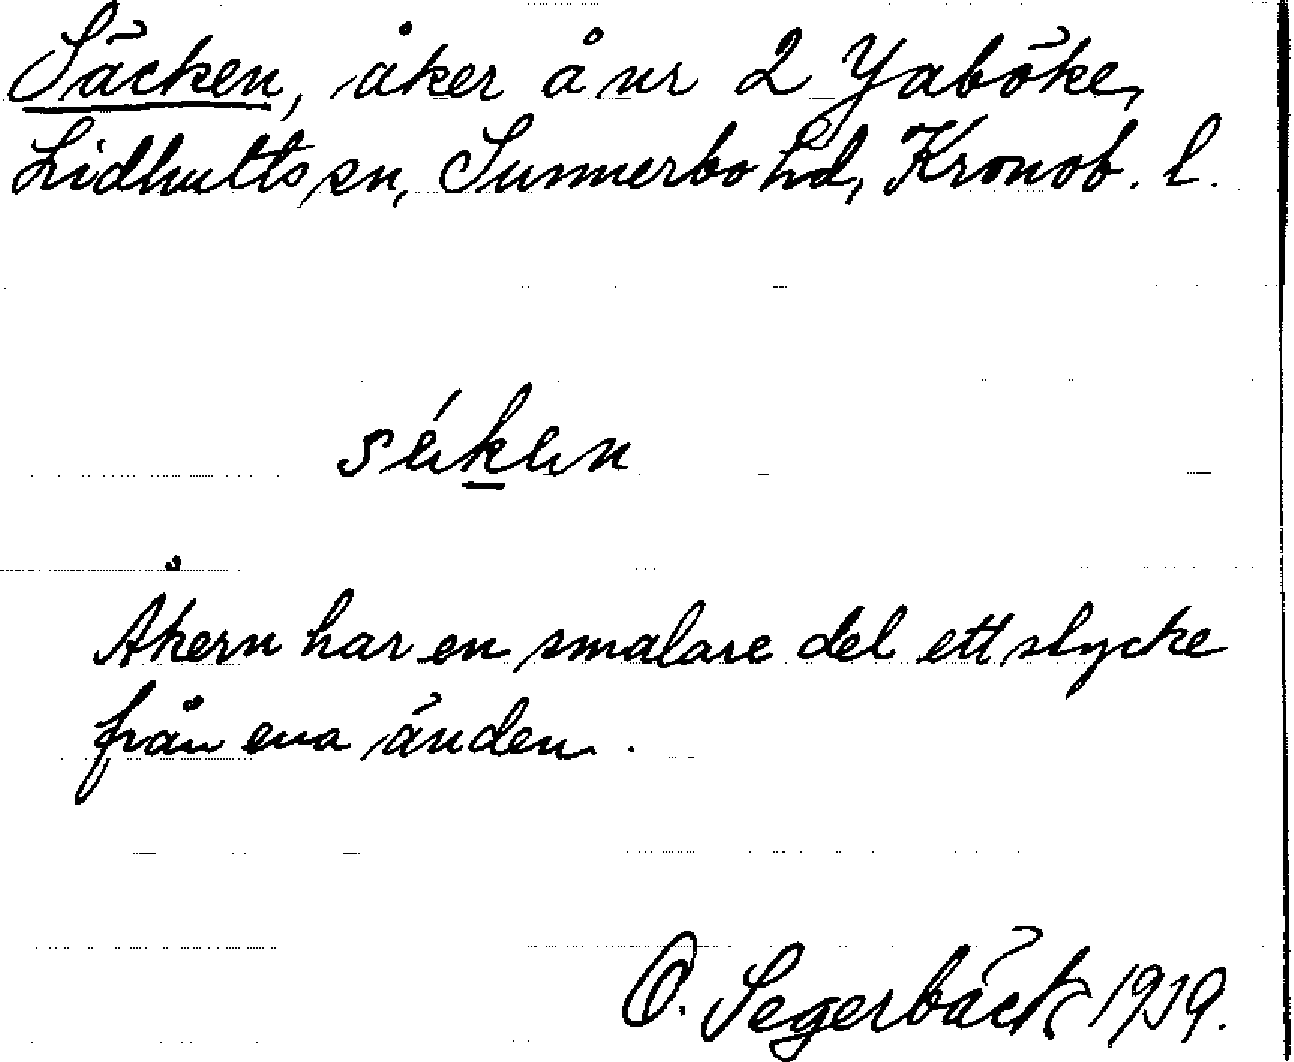 Säcken, åker å nr 2 Yaböke,
Lidhults sn, Sunnerbo hd, Kronob. l.
Åkern har en smalare del ett stycke
från ena änden.
O. Segerbäck 1919.